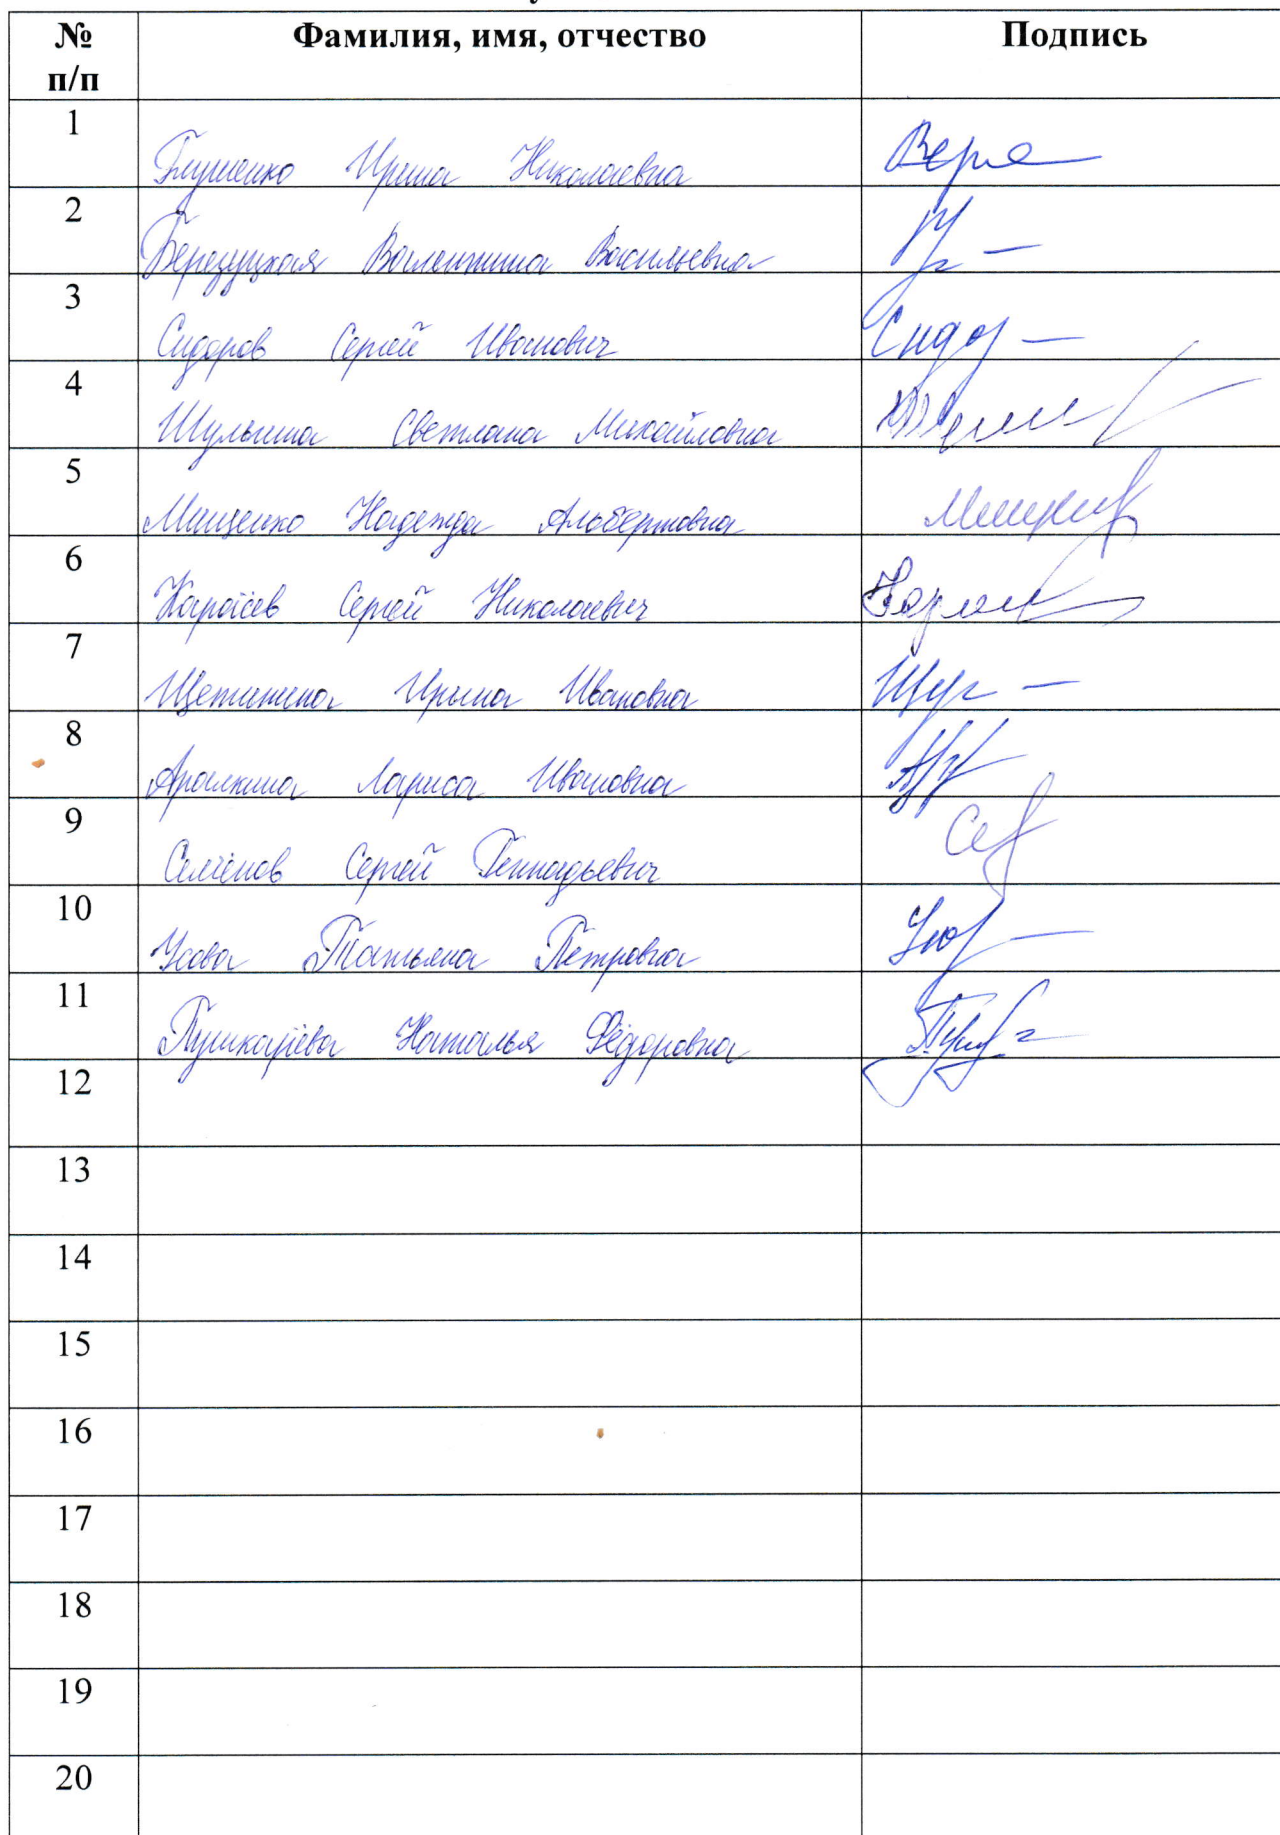 № п/п Фамилия, имя, отчество Подпись
1 Глущенко Ирина Николаевна
2 Березуцкая Валентина Васильевна
3 Сидоров Сергей Иванович
4 Шульгина Светлана Михайловна
5 Мищенко Надежда Альбертовна
6 Карасёв Сергей Николаевич
7 Щетинина Ирина Ивановна
8 Аралкина Лариса Ивановна
9 Семёнов Сергей Геннадьевич
10 Усова Татьяна Петровна
11 Пушкарёва Наталья Фёдоровна
12
13
14
15
16
17
18
19
20